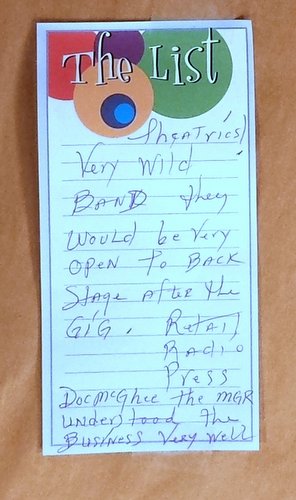 The List
theatrical
Very Wild
BAND they
WOULD be Very
OPEN TO BACK
Stage AFter the
GIG. RETAIL
RADIO
Press
DocMcGhee the MGR
understood the
BUSINESS Very Well